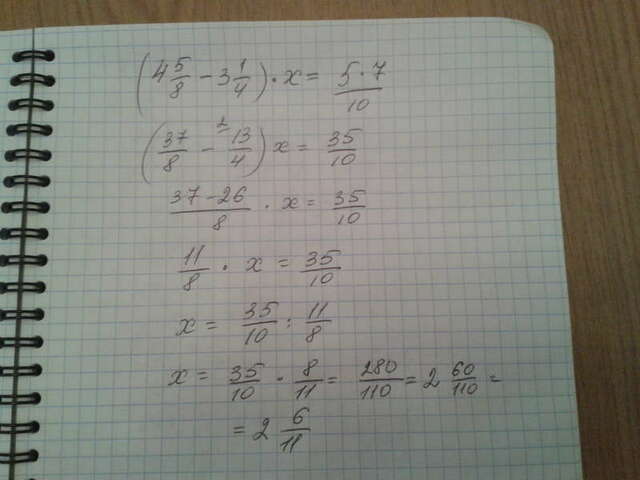 (4 5/8 - 3 1/4) · x = 5·7/10
(37/8 - 13/4 ²) x = 35/10
37-26/8 · x = 35/10
11/8 · x = 35/10
x = 35/10 : 11/8
x = 35/10 · 8/11 = 280/110 = 2 60/110 =
= 2 6/11